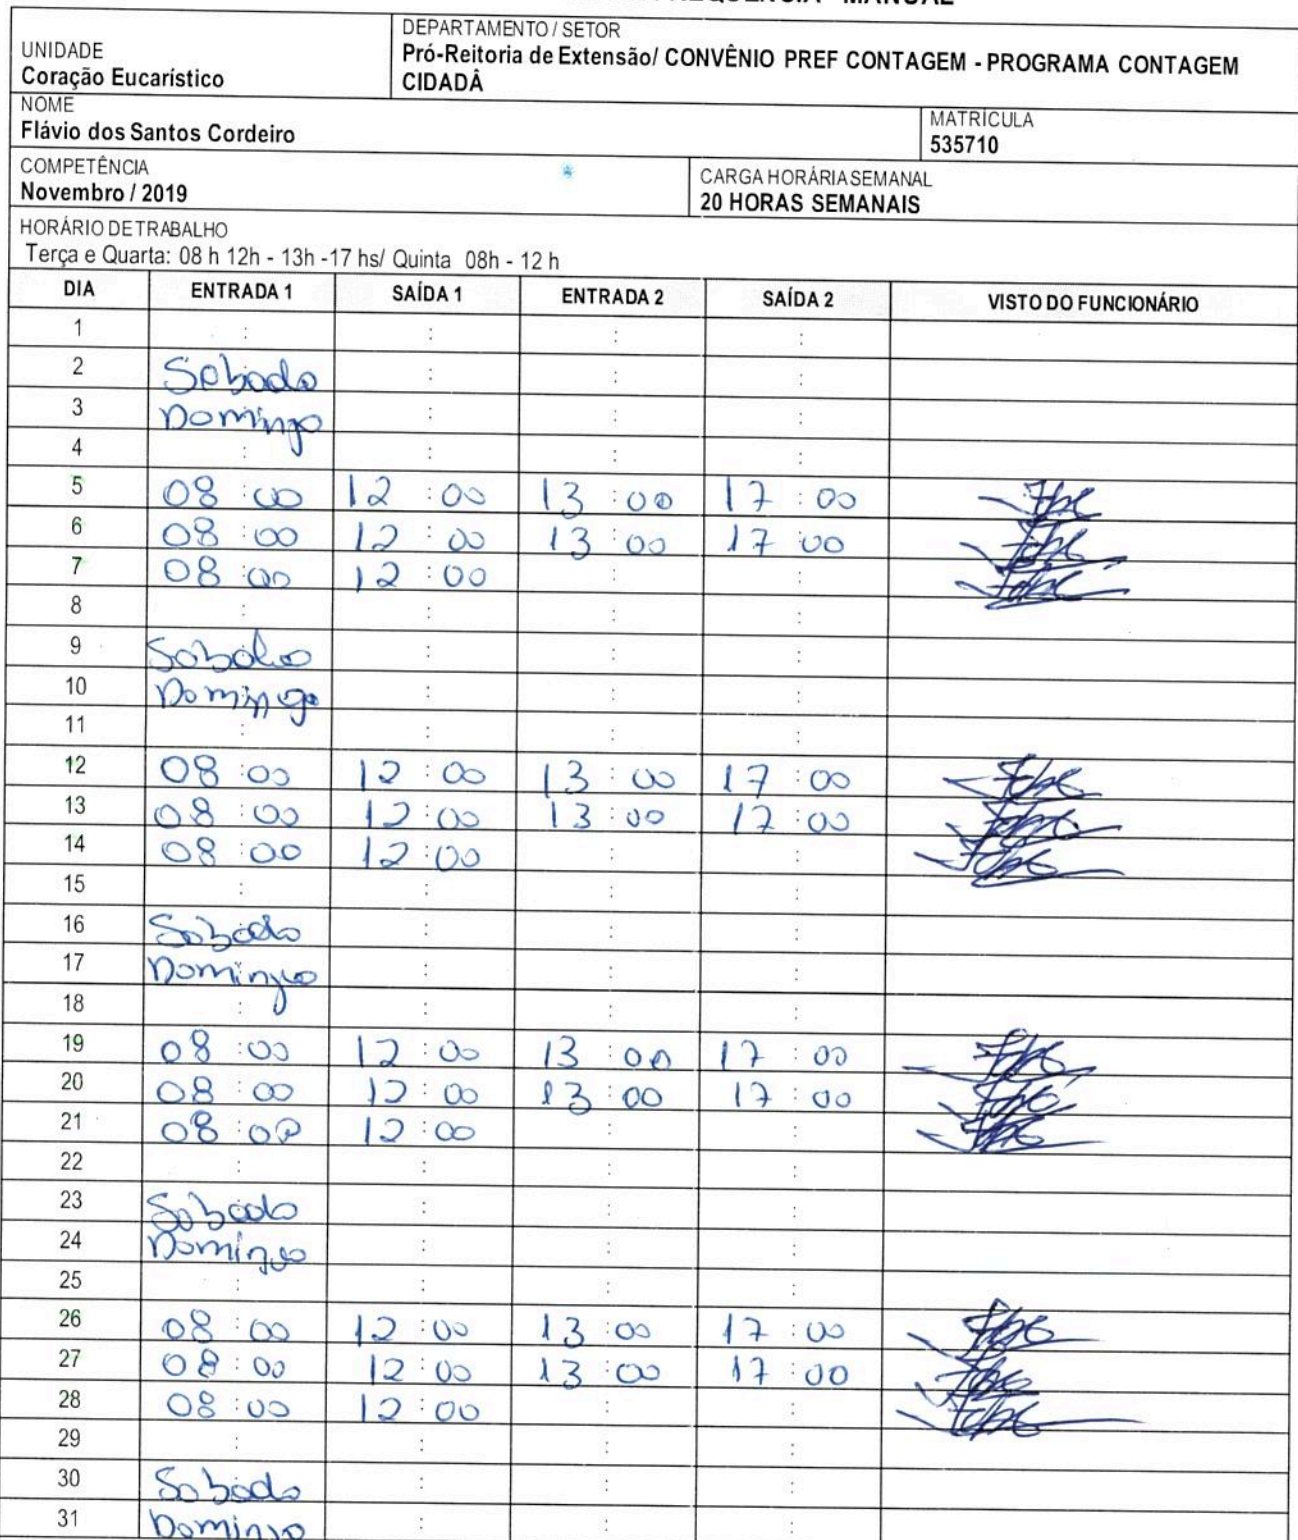 MANUAL
UNIDADE
Coração Eucarístico
DEPARTAMENTO / SETOR
Pró-Reitoria de Extensão/ CONVÊNIO PREF CONTAGEM - PROGRAMA CONTAGEM
CIDADÂ
NOME
Flávio dos Santos Cordeiro
MATRÍCULA
535710
COMPETÊNCIA
Novembro / 2019
CARGA HORÁRIA SEMANAL
20 HORAS SEMANAIS
HORÁRIO DE TRABALHO
Terça e Quarta: 08 h 12h - 13h -17 hs/ Quinta 08h - 12 h
DIA ENTRADA 1 SAÍDA 1 ENTRADA 2 SAÍDA 2 VISTO DO FUNCIONÁRIO
1 : : : :
2 Sabado : : :
3 Domingo : : :
4 : : : :
5 08 :00 12 :00 13 :00 17 :00
6 08 :00 12 :00 13 :00 17 :00
7 08 :00 12 :00 : :
8 : : : :
9 Sabado : : :
10 Domingo : : :
11 : : : :
12 08 :00 12 :00 13 :00 17 :00
13 08 :00 12 :00 13 :00 17 :00
14 08 :00 12 :00 : :
15 : : : :
16 Sabado : : :
17 Domingo : : :
18 : : : :
19 08 :00 12 :00 13 :00 17 :00
20 08 :00 12 :00 13 :00 17 :00
21 08 :00 12 :00 : :
22 : : : :
23 Sabado : : :
24 Domingo : : :
25 : : : :
26 08 :00 12 :00 13 :00 17 :00
27 08 :00 12 :00 13 :00 17 :00
28 08 :00 12 :00 : :
29 : : : :
30 Sabado : : :
31 Domingo : : :